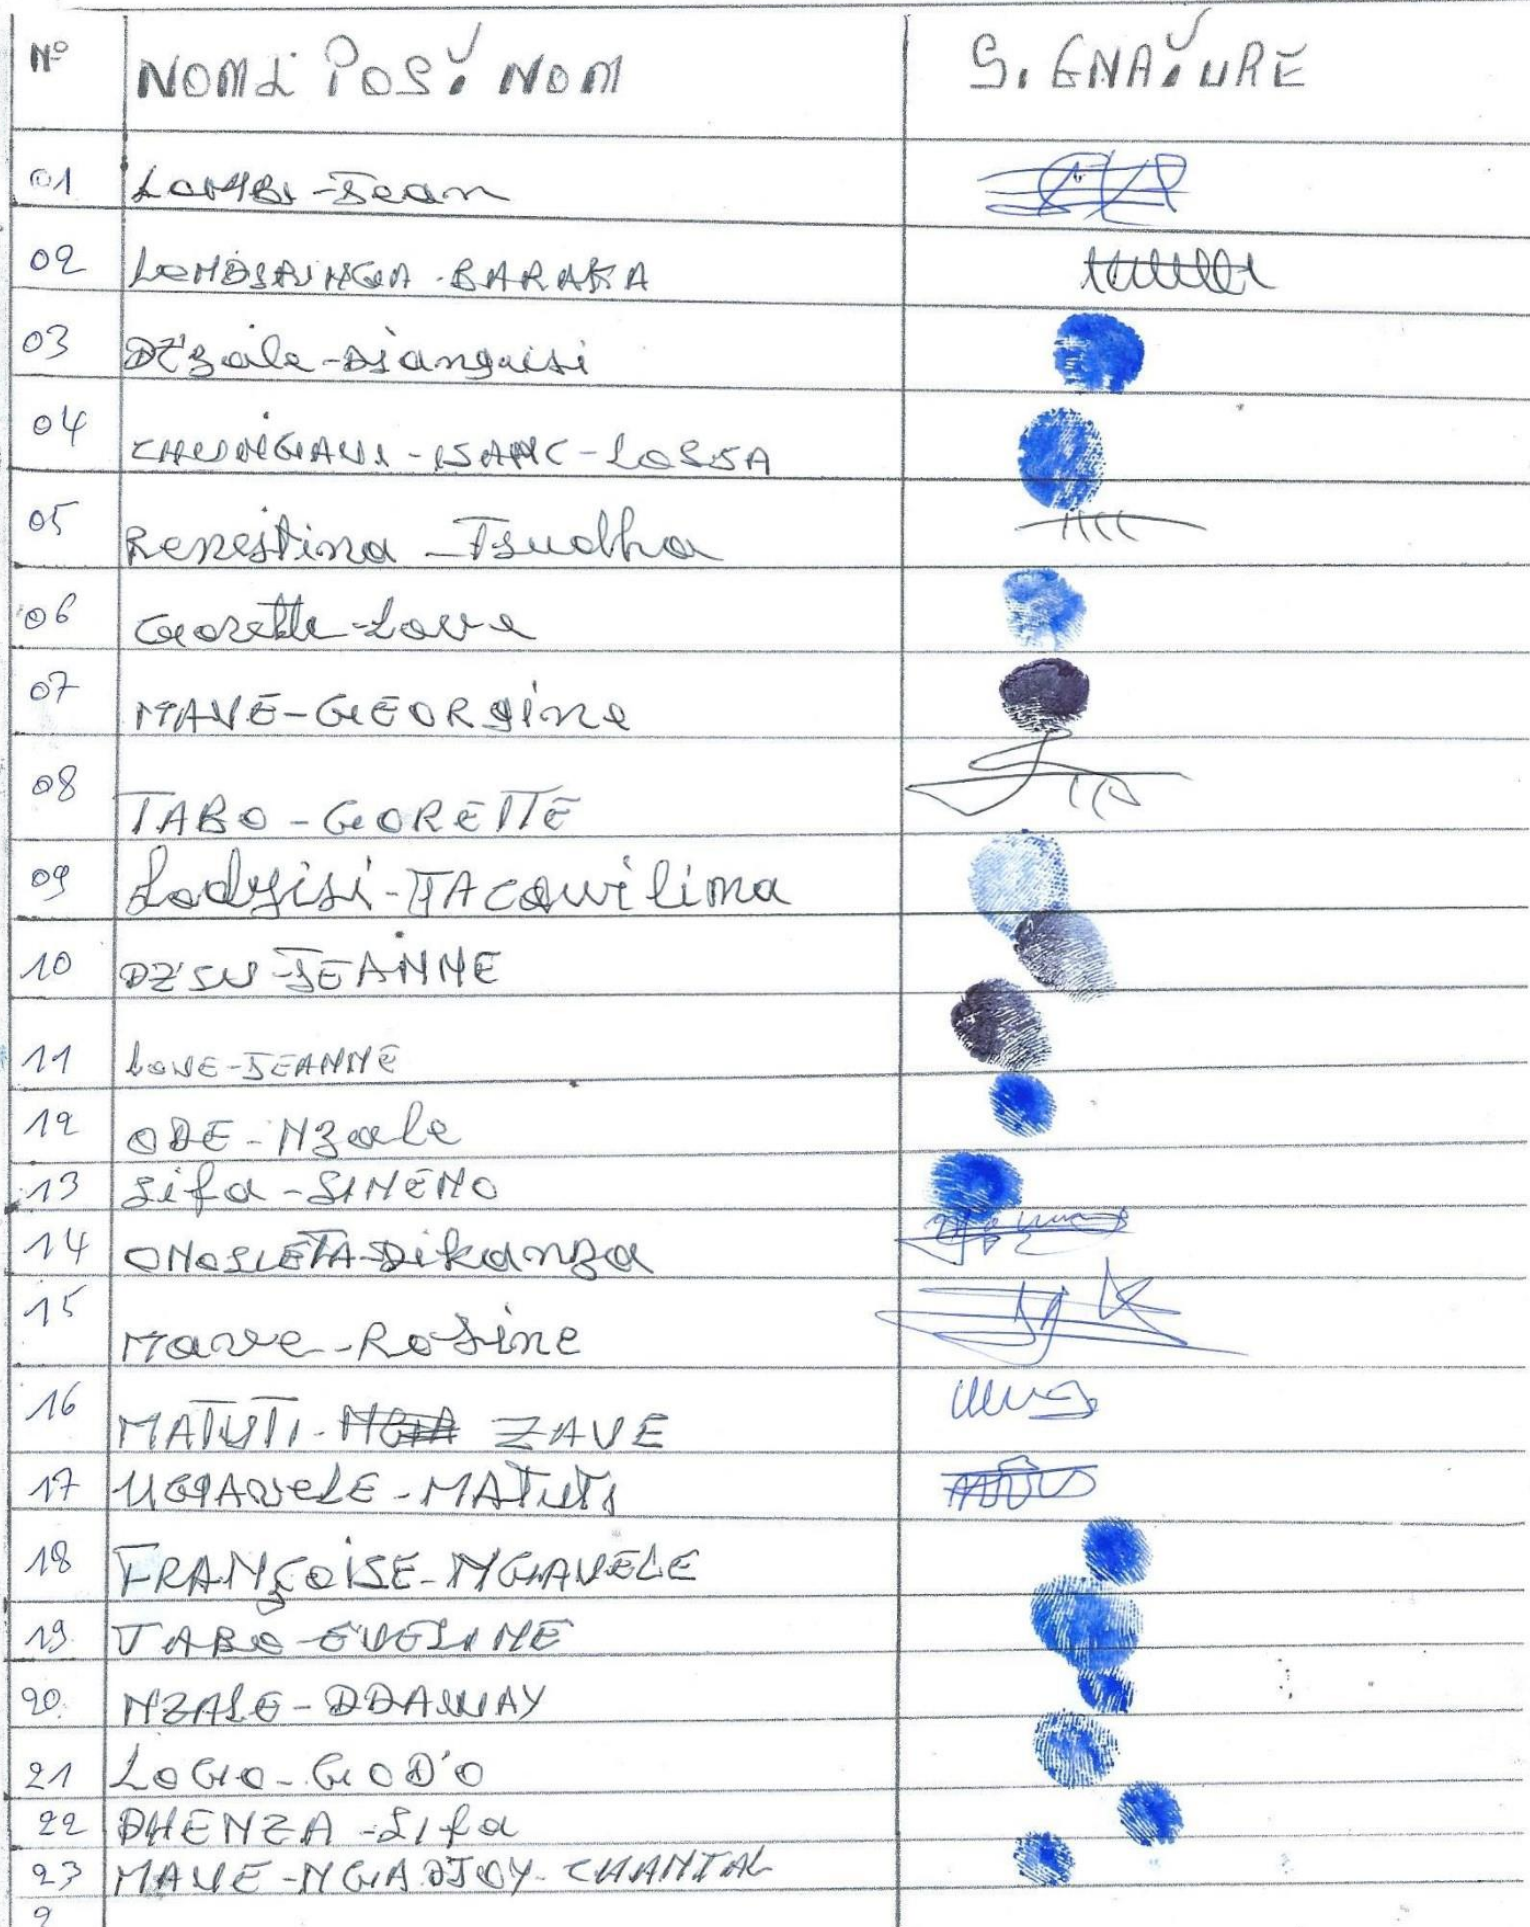 N° NOM & POSTNOM SIGNATURE
01 LOMBI-Jean
02 BARAKA
03 DZ'zale-Djanguisi
04 -ISAAC-LOSSA
05 Renestina-Tsudha
06 Gorette-Love
07 MAVE-GEORgine
08 TABO-GORETTE
09 Lodyisi-JACquilina
10 DZ'SU-JEANNE
11 LOVE-JEANNE
12 ODE-NZale
13 Sifa-SINENO
14 Dikanza
15 Mave-Rosine
16 MATUTI-ZAVE
17 MATUTI
18 FRANÇOISE-NGAVELE
19 TABO-EVELINE
20. NZALE-
21 LOGO-GOD'O
22 DHENZA-Sifa
23 MAVE-NGADJOY-CHANTAL